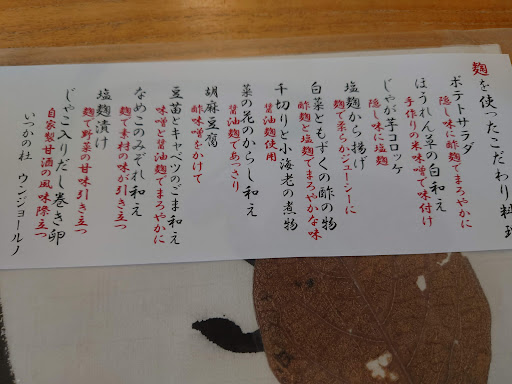 麹を使ったこだわり料理
ポテトサラダ
隠し味に酢麹でまろやかに
ほうれん草の白和え
手作りの米味噌で味付け
じゃが芋コロッケ
隠し味に塩麹
塩麹から揚げ
麹で柔らかジューシーに
白菜ともずくの酢の物
酢麹と塩麹でまろやかな味
千切りと小海老の煮物
醤油麹使用
菜の花のからし和え
醤油麹であっさり
胡麻豆腐
酢味噌をかけて
豆苗とキャベツのごま和え
味噌と醤油麹でまろやかに
なめこのみぞれ和え
麹で素材の味が引き立つ
塩麹漬け
麹で野菜の甘味引き立つ
じゃこ入りだし巻き卵
自家製甘酒の風味際立つ
いつかの杜 ウンジョールノ